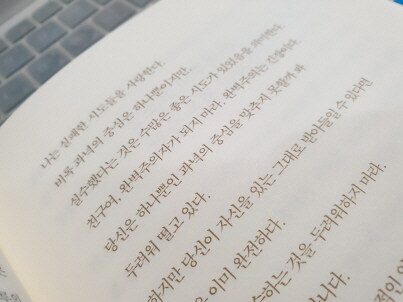 나는 실패한 시도들을 사랑한다.
비록 과녁의 중심은 하나뿐이지만,
실수했다는 것은 수많은 좋은 시도가 있었음을 의미한다.
친구여, 완벽주의자가 되지 마라. 완벽주의는 긴장이다.
당신은 하나뿐인 과녁의 중심을 맞추지 못할까 봐
두려워 떨고 있다.
하지만 당신이 자신을 있는 그대로 받아들일 수 있다면
은 이미 완전하다.
수하는 것을 두려워하지 마라.
니다.
적인 인